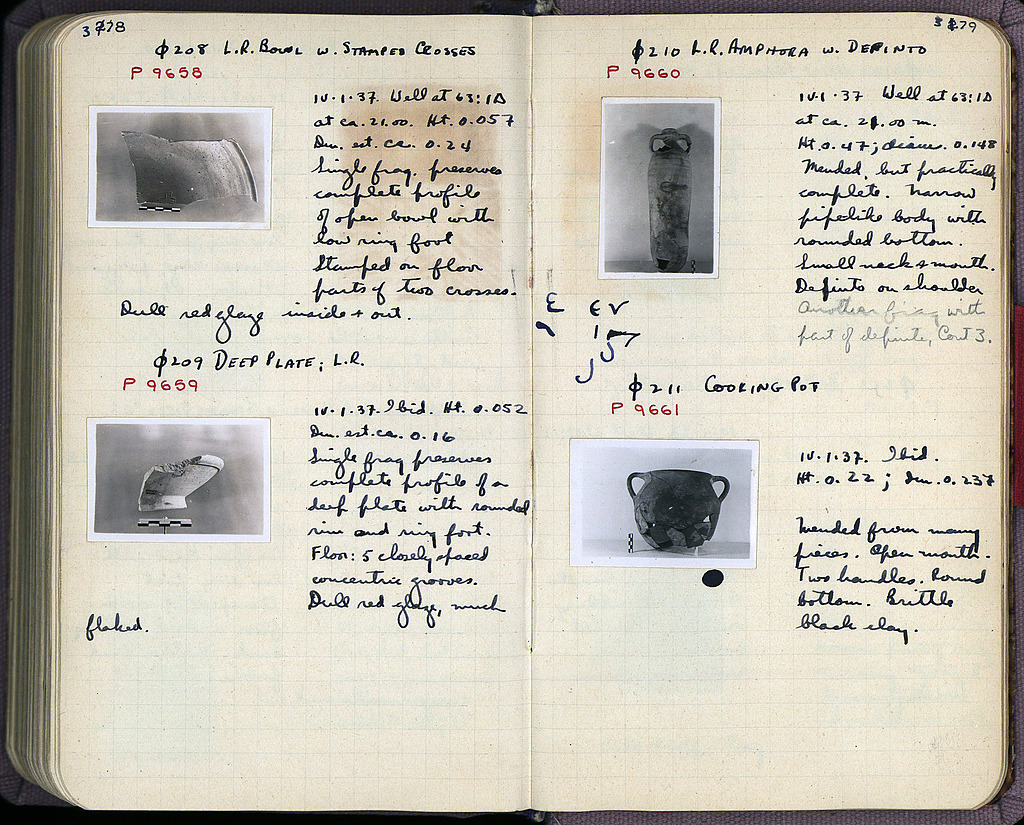 3778
Φ208 L.R. BOWL W. STAMPED CROSSES
P 9658
IV.1.37. Well at 63:1Δ
at ca. 21.00. Ht. 0.057
Dm. est. ca. 0.24
Single frag. preserves
complete profile
of open bowl with
low ring foot
Stamped on floor
parts of two crosses.
Dull red glaze inside + out.
Φ209 DEEP PLATE; L.R.
P 9659
IV.1.37. Ibid. Ht. 0.052
Dm. est. ca. 0.16
Single frag preserves
complete profile of a
deep plate with rounded
rim and ring foot.
Floor: 5 closely spaced
concentric grooves.
Dull red glaze, much
flaked.
3779
Φ210 L.R. AMPHORA W. DEPINTO
P 9660
IV.1.37 Well at 63:1Δ
at ca. 21.00 m.
Ht. 0.47; diam. 0.148
Mended, but practically
complete. Narrow
pipelike body with
rounded bottom.
Small neck + mouth.
Depinto on shoulder
Another frag with
part of depinto, Cont 3.
Φ211 COOKING POT
P 9661
IV.1.37. Ibid.
Ht. 0.22; Dm. 0.237
Mended from many
pieces. Open mouth.
Two handles. Round
bottom. Brittle
black clay.